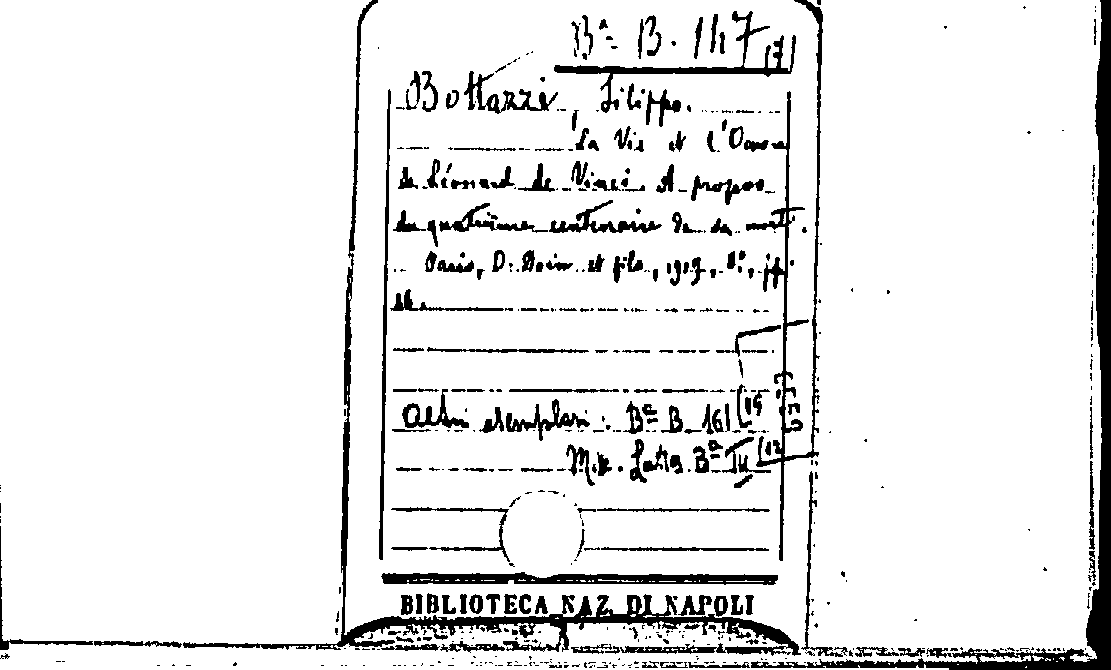 Bª B. 147 (7)
Bottazzi, Filippo.
La Vie et l'Oeuvre
de Léonard de Vinci. A propos
du quatrième centenaire de sa mort.
Paris, D. Doin et fils, 8°, pp.
Altri esemplari: Bª B. 161 (15
Bª IV (12
BIBLIOTECA NAZ. DI NAPOLI